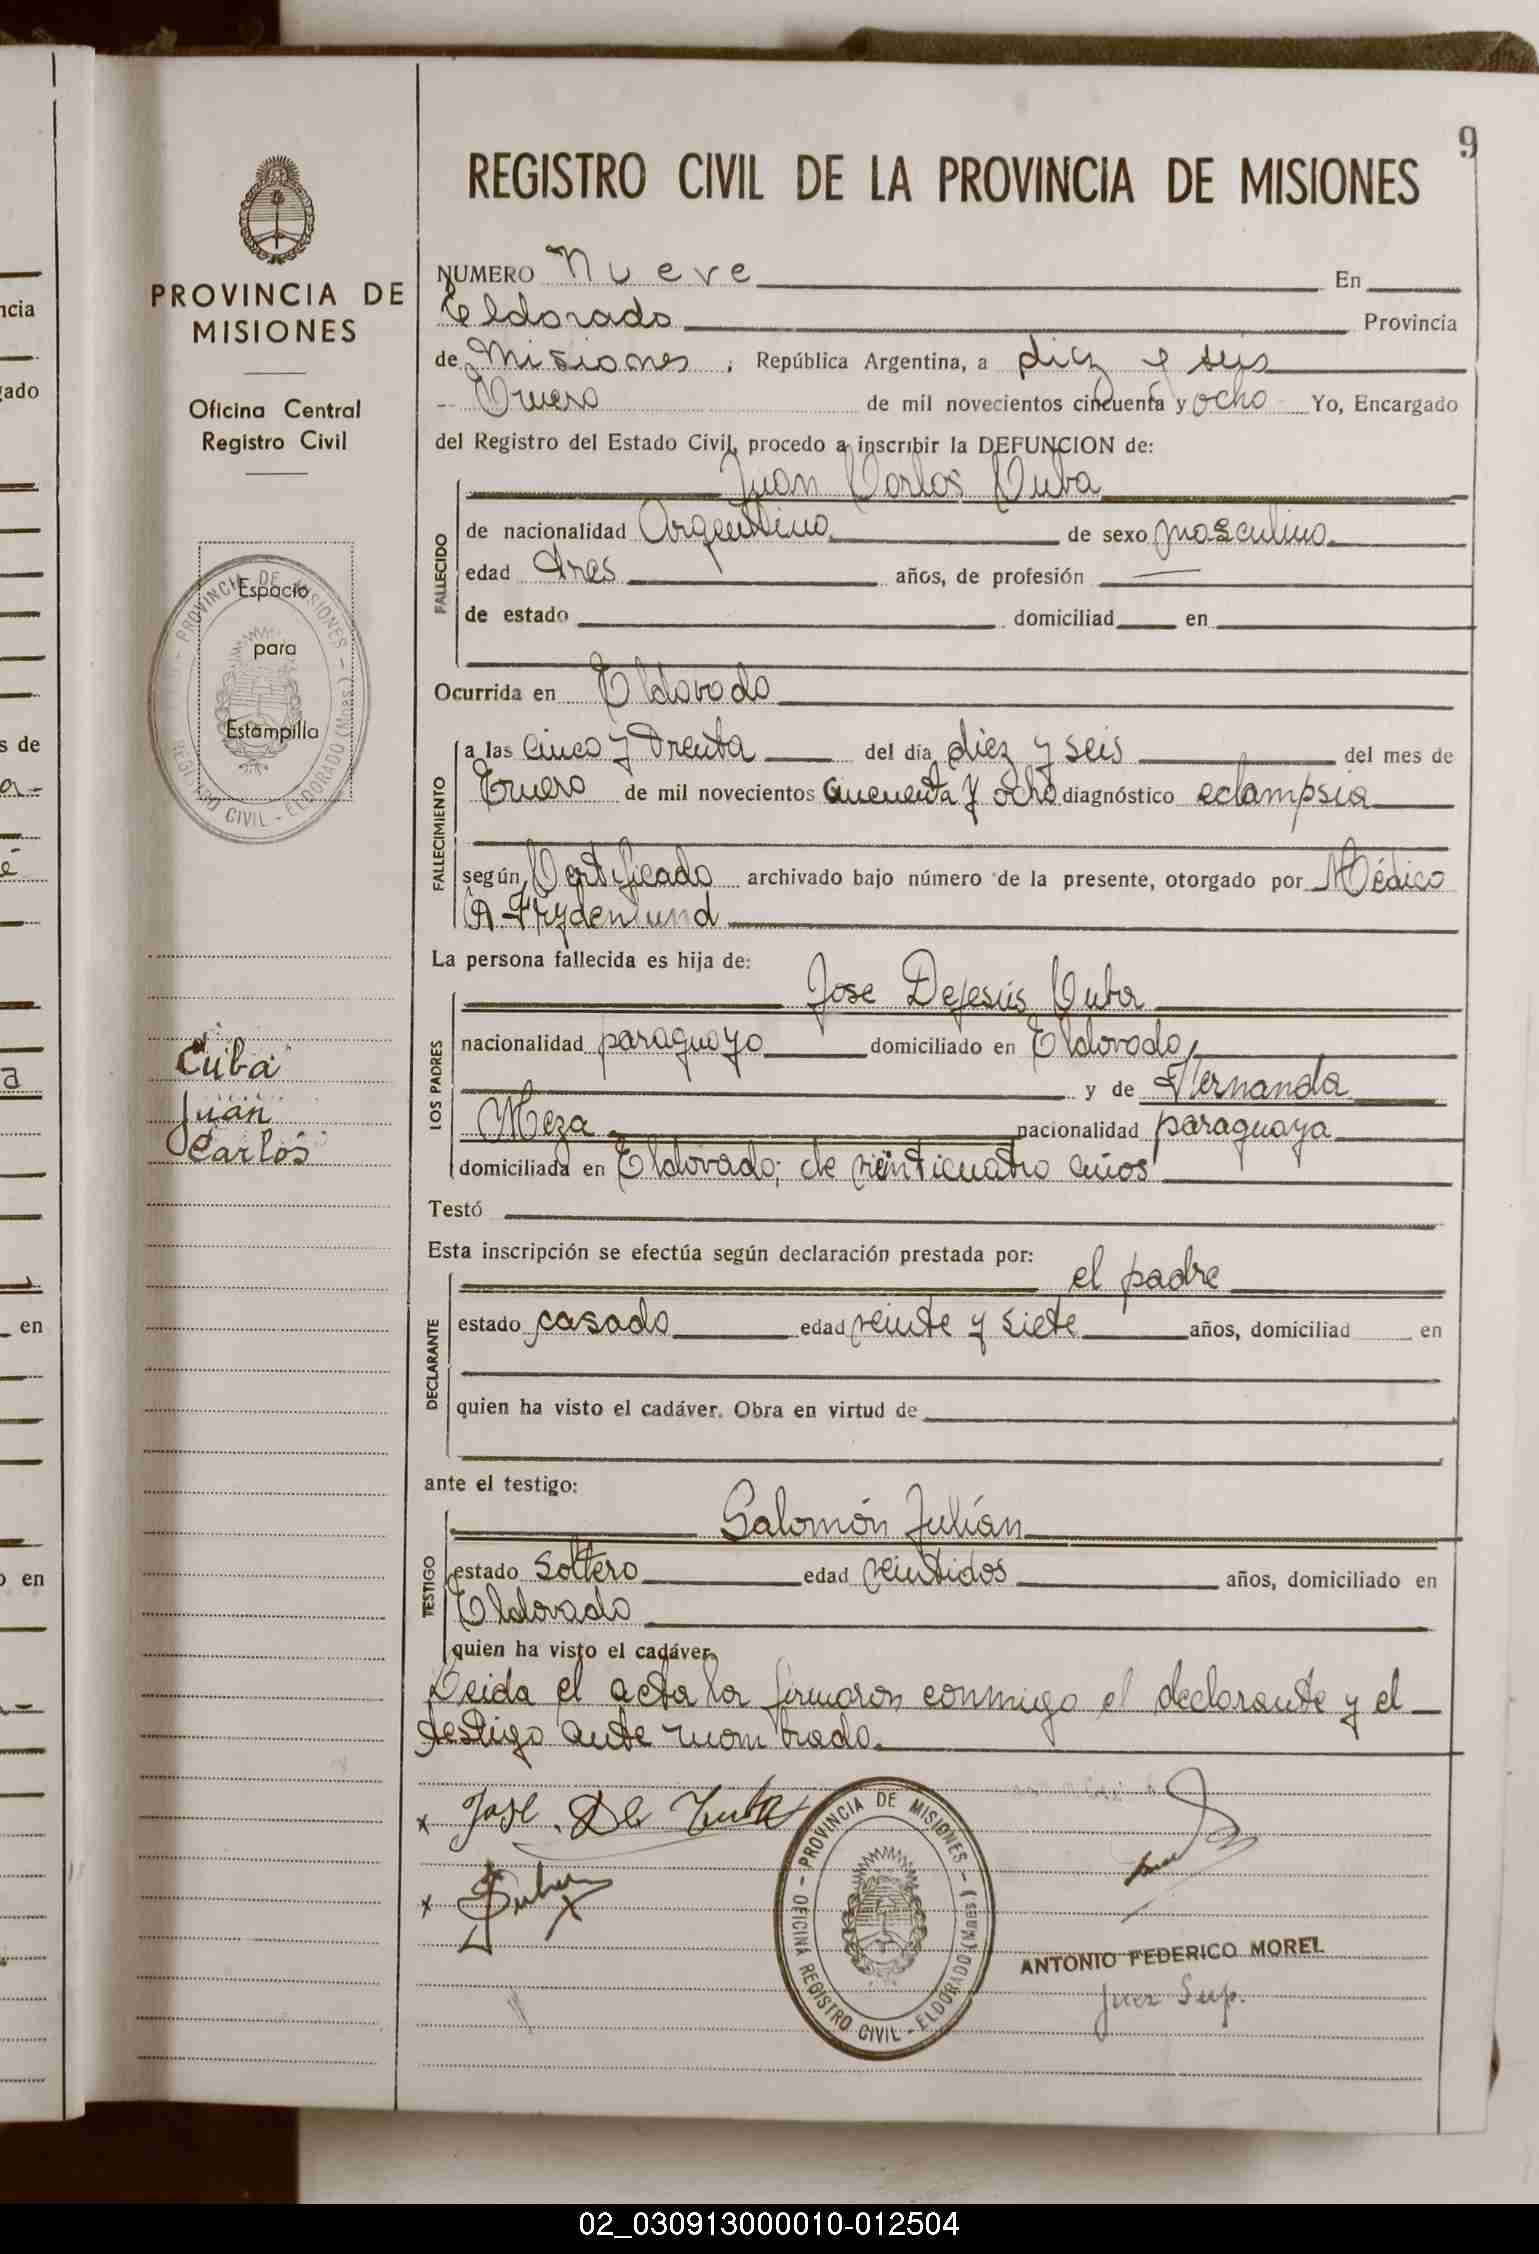 9
REGISTRO CIVIL DE LA PROVINCIA DE MISIONES
PROVINCIA DE
MISIONES
Oficina Central
Registro Civil
Espacio
para
Estampilla
PROVINCIA DE MISIONES - REGISTRO CIVIL - ELDORADO (Mnes)
Cuba
Juan
Carlos
NUMERO Nueve En
Eldorado Provincia
de Misiones, República Argentina, a diez y seis
Enero de mil novecientos cincuenta y ocho Yo, Encargado
del Registro del Estado Civil, procedo a inscribir la DEFUNCION de:
Juan Carlos Cuba
FALLECIDO
de nacionalidad Argentino de sexo masculino
edad tres años, de profesión
de estado domiciliad en
Ocurrida en Eldorado
FALLECIMIENTO
a las cinco y treinta del día diez y seis del mes de
Enero de mil novecientos cincuenta y ocho diagnóstico eclampsia
según Certificado archivado bajo número de la presente, otorgado por Médico
A. Frydenlund
La persona fallecida es hija de:
LOS PADRES
Jose Dejesús Cuba
nacionalidad paraguayo domiciliado en Eldorado,
y de Fernanda
Meza nacionalidad paraguaya
domiciliada en Eldorado; de veinticuatro años
Testó
Esta inscripción se efectúa según declaración prestada por:
DECLARANTE
el padre
estado casado edad veinte y siete años, domiciliad en
quien ha visto el cadáver. Obra en virtud de
ante el testigo:
TESTIGO
Salomón Julián
estado soltero edad veintidos años, domiciliado en
Eldorado
quien ha visto el cadáver.
Leida el acta la firmaron conmigo el declarante y el
testigo ante nombrado.
x Jose De Cuba
x
PROVINCIA DE MISIONES - OFICINA REGISTRO CIVIL - ELDORADO (MNES)
ANTONIO FEDERICO MOREL
Juez Sup.
ncia
gado
s de
en
o en
02_030913000010-012504